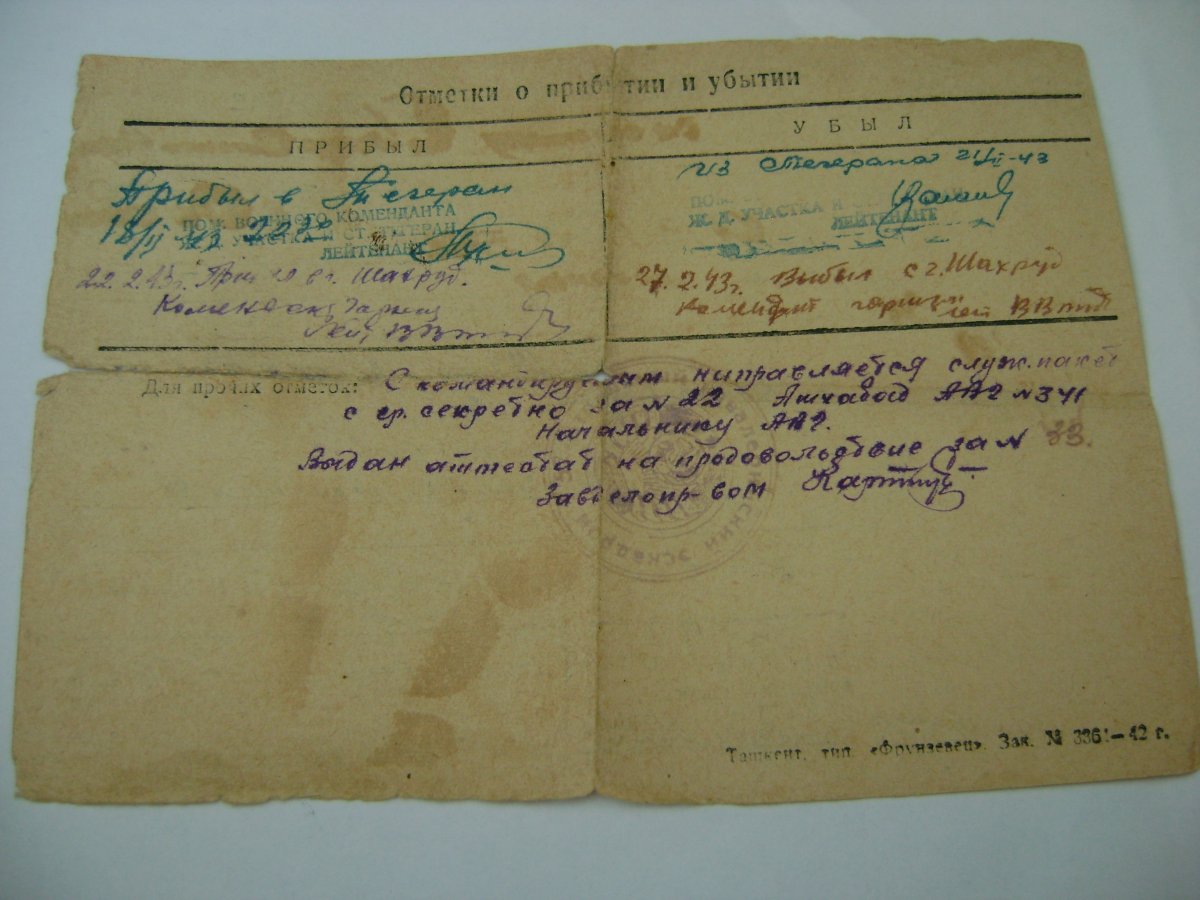 Отметки о прибытии и убытии
ПРИБЫЛ
УБЫЛ
Прибыл в Тегеран
18/II 43 2230
ПОМ. ВОЕННОГО КОМЕНДАНТА
Ж. Д. УЧАСТКА И СТ. ТЕГЕРАН
ЛЕЙТЕНАНТ
22.2.43г. г. Шахруд.
Комендант
из Тегерана 21/II-43
ПОМ.
Ж. Д. УЧАСТКА И
ЛЕЙТЕНАНТ
27.2.43г. Выбыл с г. Шахруд
Комендант ВВ
Для прочих отметок: С командируемым направляется служ. пакет
с гр. секретно за N 22 Ашхабад N 341
Начальнику
Выдан аттестат на продовольствие за N 33.
Завделопр-вом
Ташкент, тип. «Фрунзевец». Зак. № 3361—42 г.